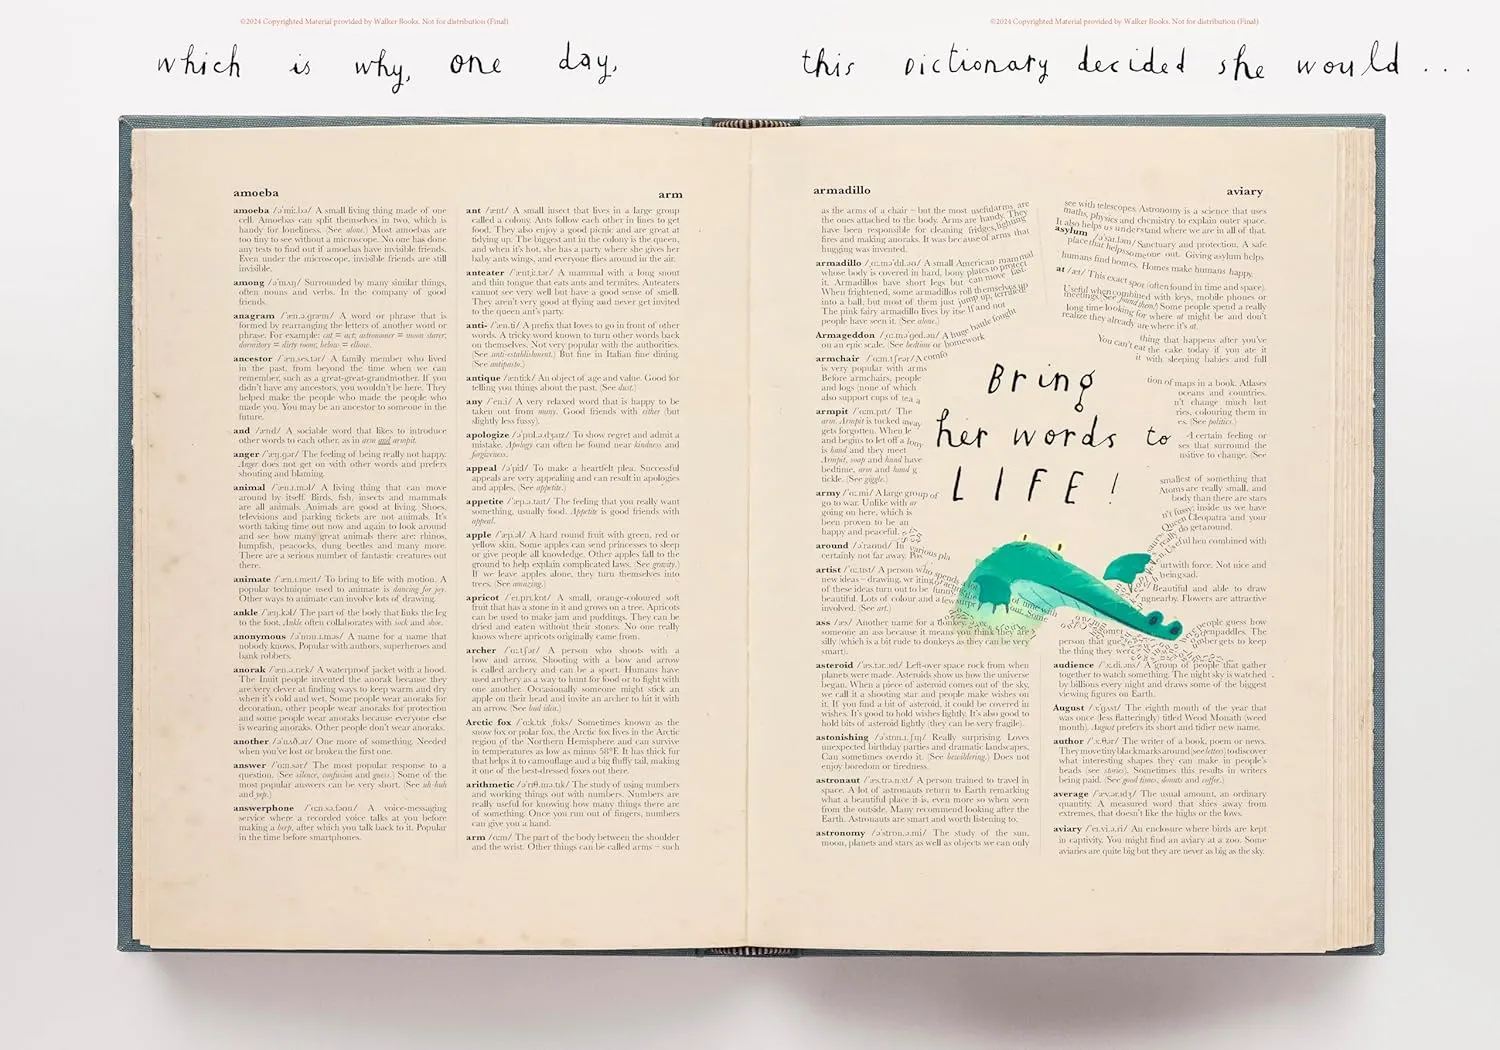 ©2024 Copyrighted Material provided by Walker Books. Not for distribution (Final)
©2024 Copyrighted Material provided by Walker Books. Not for distribution (Final)
which is why, one day,
this Dictionary decided she would ...
amoeba
arm
amoeba /əˈmiːbə/ A small living thing made of one
cell. Amoebas can split themselves in two, which is
handy for loneliness. (See alone.) Most amoebas are
too tiny to see without a microscope. No one has done
any tests to find out if amoebas have invisible friends.
Even under the microscope, invisible friends are still
invisible.
among /əˈmʌŋ/ Surrounded by many similar things,
often nouns and verbs. In the company of good
friends.
anagram /ˈæn.ə.ɡræm/ A word or phrase that is
formed by rearranging the letters of another word or
phrase. For example: cat = act; astronomer = moon starer;
dormitory = dirty room; below = elbow.
ancestor /ˈæn.ses.tər/ A family member who lived
in the past, from beyond the time when we can
remember, such as a great-great-grandmother. If you
didn't have any ancestors, you wouldn't be here. They
helped make the people who made the people who
made you. You may be an ancestor to someone in the
future.
and /ænd/ A sociable word that likes to introduce
other words to each other, as in arm and armpit.
anger /ˈæŋ.ɡər/ The feeling of being really not happy.
Anger does not get on with other words and prefers
shouting and blaming.
animal /ˈæn.ɪ.məl/ A living thing that can move
around by itself. Birds, fish, insects and mammals
are all animals. Animals are good at living. Shoes,
televisions and parking tickets are not animals. It's
worth taking time out now and again to look around
and see how many great animals there are: rhinos,
lumpfish, peacocks, dung beetles and many more.
There are a serious number of fantastic creatures out
there.
animate /ˈæn.ɪ.meɪt/ To bring to life with motion. A
popular technique used to animate is dancing for joy.
Other ways to animate can involve lots of drawing.
ankle /ˈæŋ.kəl/ The part of the body that links the leg
to the foot. Ankle often collaborates with sock and shoe.
anonymous /əˈnɒn.ɪ.məs/ A name for a name that
nobody knows. Popular with authors, superheroes and
bank robbers.
anorak /ˈæn.ə.ræk/ A waterproof jacket with a hood.
The Inuit people invented the anorak because they
are very clever at finding ways to keep warm and dry
when it's cold and wet. Some people wear anoraks for
decoration, other people wear anoraks for protection
and some people wear anoraks because everyone else
is wearing anoraks. Other people don't wear anoraks.
another /əˈnʌð.ər/ One more of something. Needed
when you've lost or broken the first one.
answer /ˈɑːn.sər/ The most popular response to a
question. (See silence, confusion and guess.) Some of the
most popular answers can be very short. (See uh-huh
and yup.)
answerphone /ˈɑːn.sə.fəʊn/ A voice-messaging
service where a recorded voice talks at you before
making a beep, after which you talk back to it. Popular
in the time before smartphones.
ant /ænt/ A small insect that lives in a large group
called a colony. Ants follow each other in lines to get
food. They also enjoy a good picnic and are great at
tidying up. The biggest ant in the colony is the queen,
and when it's hot, she has a party where she gives her
baby ants wings, and everyone flies around in the air.
anteater /ˈæntˌiː.tər/ A mammal with a long snout
and thin tongue that eats ants and termites. Anteaters
cannot see very well but have a good sense of smell.
They aren't very good at flying and never get invited
to the queen ant's party.
anti- /ˈæn.ti/ A prefix that loves to go in front of other
words. A tricky word known to turn other words back
on themselves. Not very popular with the authorities.
(See anti-establishment.) But fine in Italian fine dining.
(See antipasto.)
antique /ænˈtiːk/ An object of age and value. Good for
telling you things about the past. (See dust.)
any /ˈen.i/ A very relaxed word that is happy to be
taken out from many. Good friends with either (but
slightly less fussy).
apologize /əˈpɒl.ə.dʒaɪz/ To show regret and admit a
mistake. Apology can often be found near kindness and
forgiveness.
appeal /əˈpiːl/ To make a heartfelt plea. Successful
appeals are very appealing and can result in apologies
and apples. (See appetite.)
appetite /ˈæp.ə.taɪt/ The feeling that you really want
something, usually food. Appetite is good friends with
appeal.
apple /ˈæp.əl/ A hard round fruit with green, red or
yellow skin. Some apples can send princesses to sleep
or give people all knowledge. Other apples fall to the
ground to help explain complicated laws. (See gravity.)
If we leave apples alone, they turn themselves into
trees. (See amazing.)
apricot /ˈeɪ.prɪ.kɒt/ A small, orange-coloured soft
fruit that has a stone in it and grows on a tree. Apricots
can be used to make jam and puddings. They can be
dried and eaten without their stones. No one really
knows where apricots originally came from.
archer /ˈɑː.tʃər/ A person who shoots with a
bow and arrow. Shooting with a bow and arrow
is called archery and can be a sport. Humans have
used archery as a way to hunt for food or to fight with
one another. Occasionally someone might stick an
apple on their head and invite an archer to hit it with
an arrow. (See bad idea.)
Arctic fox /ˈɑːk.tɪk ˌfɒks/ Sometimes known as the
snow fox or polar fox, the Arctic fox lives in the Arctic
region of the Northern Hemisphere and can survive
in temperatures as low as minus 58°F. It has thick fur
that helps it to camouflage and a big fluffy tail, making
it one of the best-dressed foxes out there.
arithmetic /əˈrɪθ.mə.tɪk/ The study of using numbers
and working things out with numbers. Numbers are
really useful for knowing how many things there are
of something. Once you run out of fingers, numbers
can give you a hand.
arm /ɑːm/ The part of the body between the shoulder
and the wrist. Other things can be called arms – such
armadillo
aviary
as the arms of a chair – but the most useful arms are
the ones attached to the body. Arms are handy. They
have been responsible for cleaning fridges, lighting
fires and making anoraks. It was because of arms that
hugging was invented.
armadillo /ˌɑː.məˈdɪl.əʊ/ A small American mammal
whose body is covered in hard, bony plates to protect
it. Armadillos have short legs but can move fast.
When frightened, some armadillos roll themselves up
into a ball, but most of them just jump up, terrified.
The pink fairy armadillo lives by itself and not
people have seen it. (See alone.)
Armageddon /ˌɑː.məˈɡed.ən/ A huge battle fought
on an epic scale. (See bedtime or homework
armchair /ˈɑːm.tʃeər/ A comfo
is very popular with arms
Before armchairs, people
and logs (none of which
also support cups of tea a
armpit /ˈɑːm.pɪt/ The
arm. Armpit is tucked away
gets forgotten. When le
and begins to let off a
is hand and they meet
Armpit, soap and hand have
bedtime, arm and hand g
tickle. (See giggle.)
army /ˈɑː.mi/ A large group of
go to war. Unlike with ar
going on here, which is
been proven to be an
happy and peaceful.
around /əˈraʊnd/ In various pla
certainly not far away. Pos
artist /ˈɑː.tɪst/ A person who spends a lot
new ideas – drawing, writing
of these ideas turn out to be funny
beautiful. Lots of colour and a few surpr
involved. (See art.)
of time with
out. Some
ass /æs/ Another name for a donkey.
someone an ass because it means you think they are
silly (which is a bit rude to donkeys as they can be very
smart).
asteroid /ˈæs.tər.ɔɪd/ Left-over space rock from when
planets were made. Asteroids show us how the universe
began. When a piece of asteroid comes out of the sky,
we call it a shooting star and people make wishes on
it. If you find a bit of asteroid, it could be covered in
wishes. It's good to hold wishes lightly. It's also good to
hold bits of asteroid lightly (they can be very fragile).
astonishing /əˈstɒn.ɪ.ʃɪŋ/ Really surprising. Loves
unexpected birthday parties and dramatic landscapes.
Can sometimes overdo it. (See bewildering.) Does not
enjoy boredom or tiredness.
astronaut /ˈæs.trə.nɔːt/ A person trained to travel in
space. A lot of astronauts return to Earth remarking
what a beautiful place it is, even more so when seen
from the outside. Many recommend looking after the
Earth. Astronauts are smart and worth listening to.
astronomy /əˈstrɒn.ə.mi/ The study of the sun,
moon, planets and stars as well as objects we can only
see with telescopes. Astronomy is a science that uses
maths, physics and chemistry to explain outer space.
It also helps us understand where we are in all of that.
asylum /əˈsaɪ.ləm/ Sanctuary and protection. A safe
place that helps someone out. Giving asylum helps
humans find homes. Homes make humans happy.
at /æt/ This exact spot (often found in time and space).
Useful when combined with keys, mobile phones or
meetings. (See found them!) Some people spend a really
long time looking for where at might be and don't
realize they already are where it's at.
thing that happens after you've
You can't eat the cake today if you ate it
it with sleeping babies and full
tion of maps in a book. Atlases
oceans and countries.
n't change much but
ries, colouring them in
es. (See politics.)
A certain feeling or
ses that surround the
nsitive to change. (See
smallest of something that
Atoms are really small, and
body than there are stars
n't fussy; inside us we have
Queen Cleopatra and your
really do get around.
Useful hen combined with
urt with force. Not nice and
being sad.
Beautiful and able to draw
ng nearby. Flowers are attractive
Bring
her words to
LIFE!
people guess how
person that gue
the thing they were
mber gets to keep
audience /ˈɔː.di.əns/ A group of people that gather
together to watch something. The night sky is watched
by billions every night and draws some of the biggest
viewing figures on Earth.
August /ˈɔː.ɡʌst/ The eighth month of the year that
was once (less flatteringly) titled Weod Monath (weed
month). August prefers its short and tidier new name.
author /ˈɔː.θər/ The writer of a book, poem or news.
They move tiny black marks around (see letters) to discover
what interesting shapes they can make in people's
heads (see stories). Sometimes this results in writers
being paid. (See good times, donuts and coffee.)
average /ˈæv.ər.ɪdʒ/ The usual amount, an ordinary
quantity. A measured word that shies away from
extremes, that doesn't like the highs or the lows.
aviary /ˈeɪ.vi.ə.ri/ An enclosure where birds are kept
in captivity. You might find an aviary at a zoo. Some
aviaries are quite big but they are never as big as the sky.